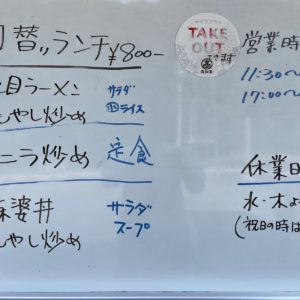 替〃ランチ ¥800-
目ラーメン サラダ
もやし炒め ライス
ニラ炒め 定食
麻婆丼 サラダ
もやし炒め スープ
TAKE
OUT
できます
営業時
11:30〜
17:00〜
休業日
水・木よ
(祝日の時は